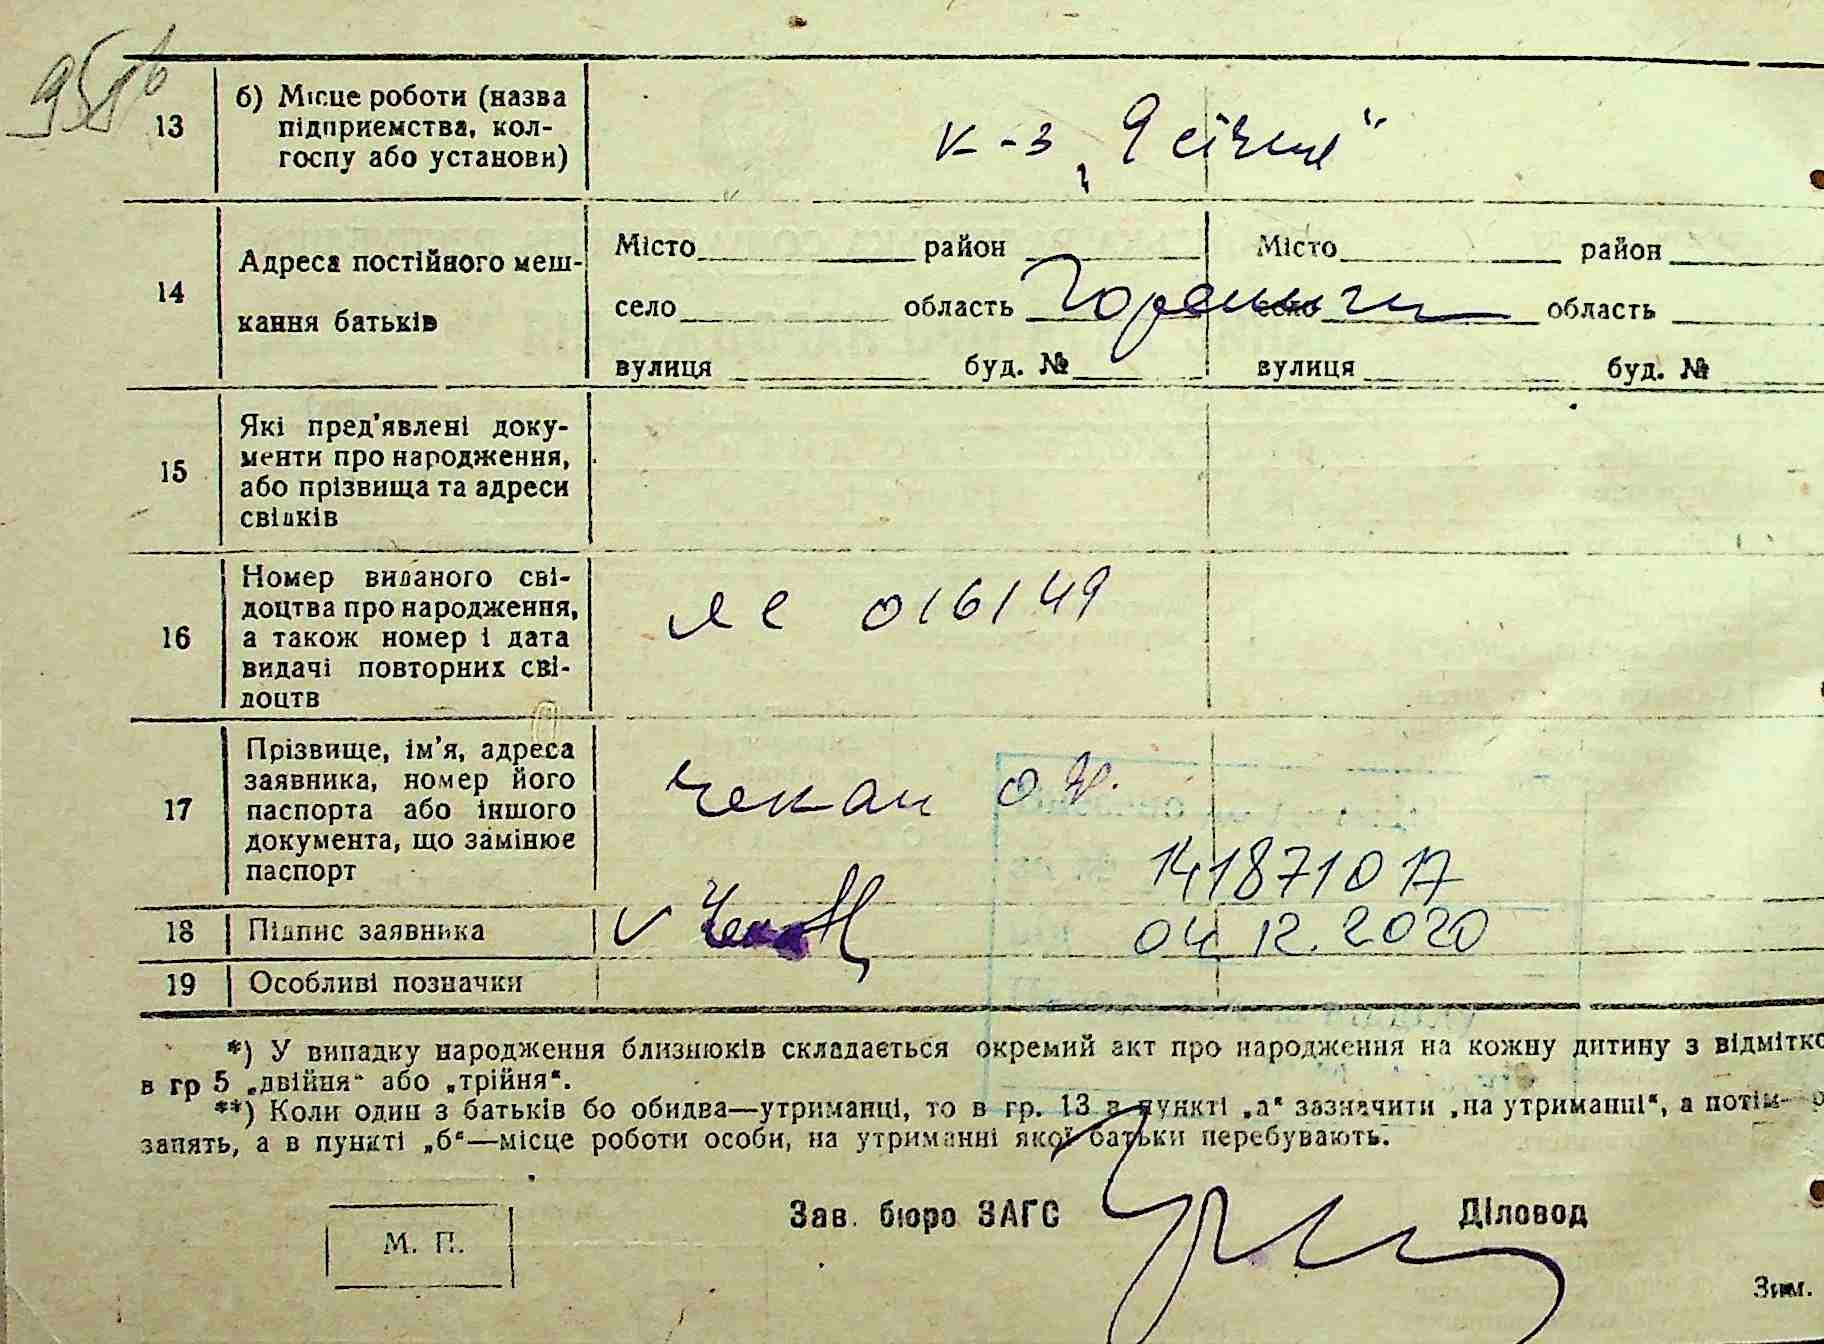 13
б) Місце роботи (назва
підприемства, кол-
госпу або установи)
к-з „9 січня“
14
Адреса постійного меш-
кання батьків
Місто район Місто район
село область Гореничі село область
вулиця буд. № вулиця буд. №
15
Які пред'явлені доку-
менти про народження,
або прізвища та адреси
свідків
16
Номер виданого сві-
доцтва про народження,
а також номер і дата
видачі повторних сві-
доцтв
ЯС 016149
17
Прізвище, ім'я, адреса
заявника, номер його
паспорта або іншого
документа, що замінює
паспорт
Чекан О.
141871017
18 Підпис заявника
04 12.2020
19 Особливі позначки
*) У випадку народження близнюків складається окремий акт про народження на кожну дитину з відмітко
в гр 5 „двійня“ або „трійня“.
**) Коли один з батьків бо обидва—утриманці, то в гр. 13 в пункті „а“ зазначити „на утриманні“, а потім
занять, а в пункті „б“—місце роботи особи, на утриманні якої батьки перебувають.
Зав. бюро ЗАГС Діловод
М. П.
Зим.